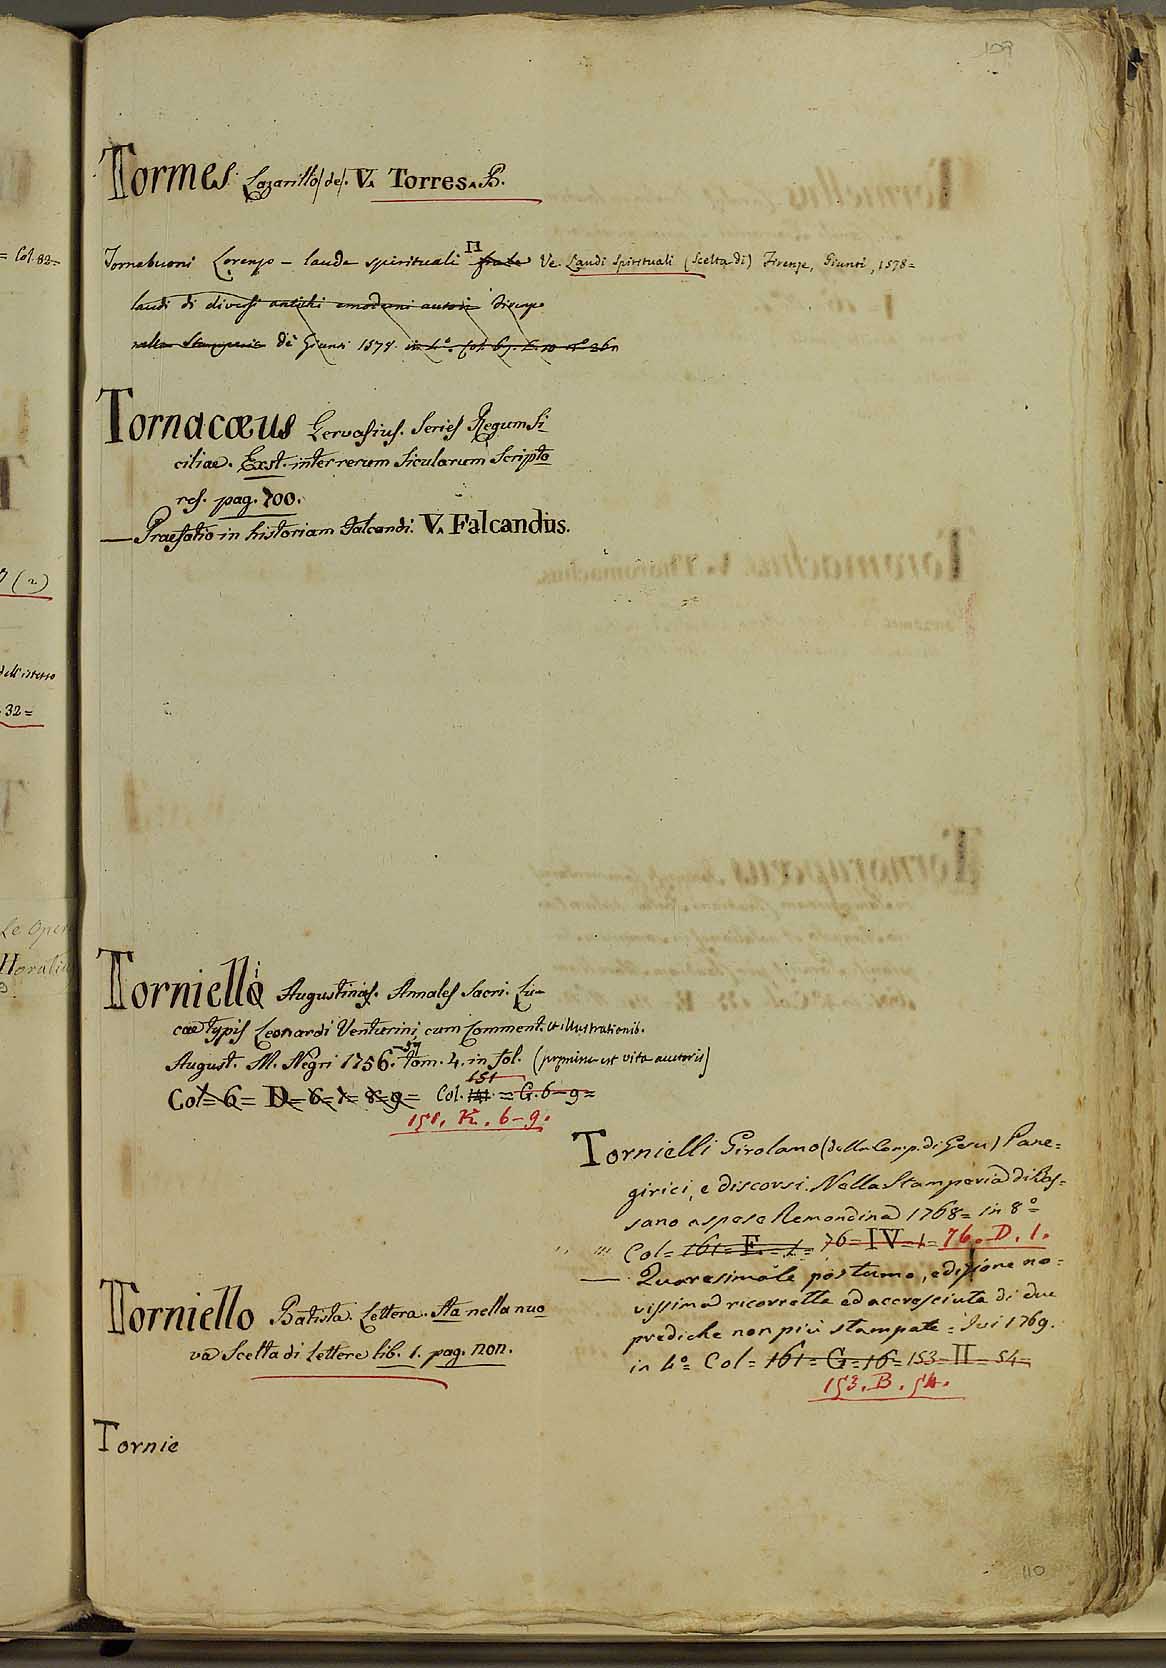 109
Tormes Lazarillo (de). V. Torres. B.
Tornabuoni Lorenzo – laude spirituali Ve. Laudi Spirituali (Scelta di) Firenze, Giunti, 1578=
laudi di diversi antichi e moderni autori
nella Stamperia de Giunti 1578. in 4°.
Tornacæus Gervasius. Series Regum Si
ciliae. Exst. inter rerum Sicularum Scripto
res. pag. 700.
— Praefatio in historiam Falcandi. V. Falcandus.
Tornielli Augustinus. Annales Sacri. Lu-
cae typis Leonardi Venturini cum Comment. et illustrationib.
August. M. Negri 1756.-57 tom. 4. in fol. (premissa est vita auctoris)
Col= 6= D= 6=7= 8=9= Col. 151 = G. 6-9=
151. K. 6-9.
Tornielli Girolamo (della Comp. di Gesu) Pane=
girici, e discorsi. Nella Stamperia di Bas=
sano a spese Remondina 1768= in 8°=
Col= 161= F= 1= 76= IV=1= 76. D. 1.
— Quaresimale postumo, edizione no=
vissima ricorretta ed accresciuta di due
prediche non più stampate= Ivi 1769.
in 4°= Col= 161= G= 16= 153= II= 54=
153. B. 54.
Torniello Batista. Lettera. Sta nella nuo
va Scelta di Lettere lib. 1. pag. non.
Tornie
110
= Col. 82=
(2)
dell'istesso
32=
Le Oper